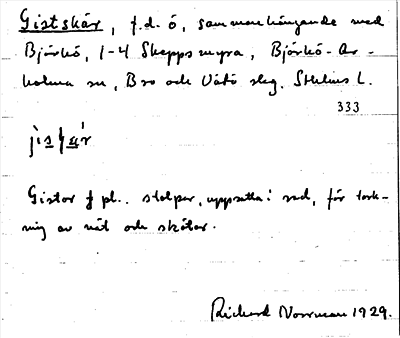 Gistskär, f.d. ö, sammanhängande med
Björkö, 1-4 Skeppsmyra, Björkö-Ar-
holma sn, Bro och Vätö slg. Sthlms L.
333
Gistor f pl.. stolpar, uppsatta i rad, för tork-
ning av nät och skötar.
Richard Norrman 1929.